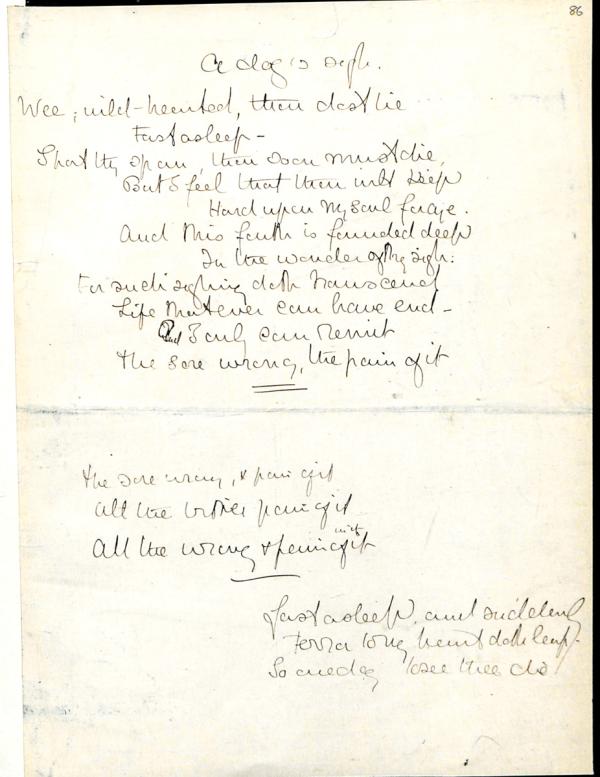 86
A dog's sigh.
Wee, mild-hearted, thou dost lie
Fast asleep –
Short thy span, thou soon must die,
But I feel that thou wilt keep
Hard upon my soul for aye.
And this faith is founded deep
In the wonder of thy sigh:
For such sighing doth transcend
Life that ever can have end –
And Soul, can remit
The sore wrong, the pain of it
the sore wrong, & pain of it
All the bitter pain of it
All the wrong & pain of it
Fast asleep, and suddenly
Terror to my heart doth leap –
So one day to see thee die